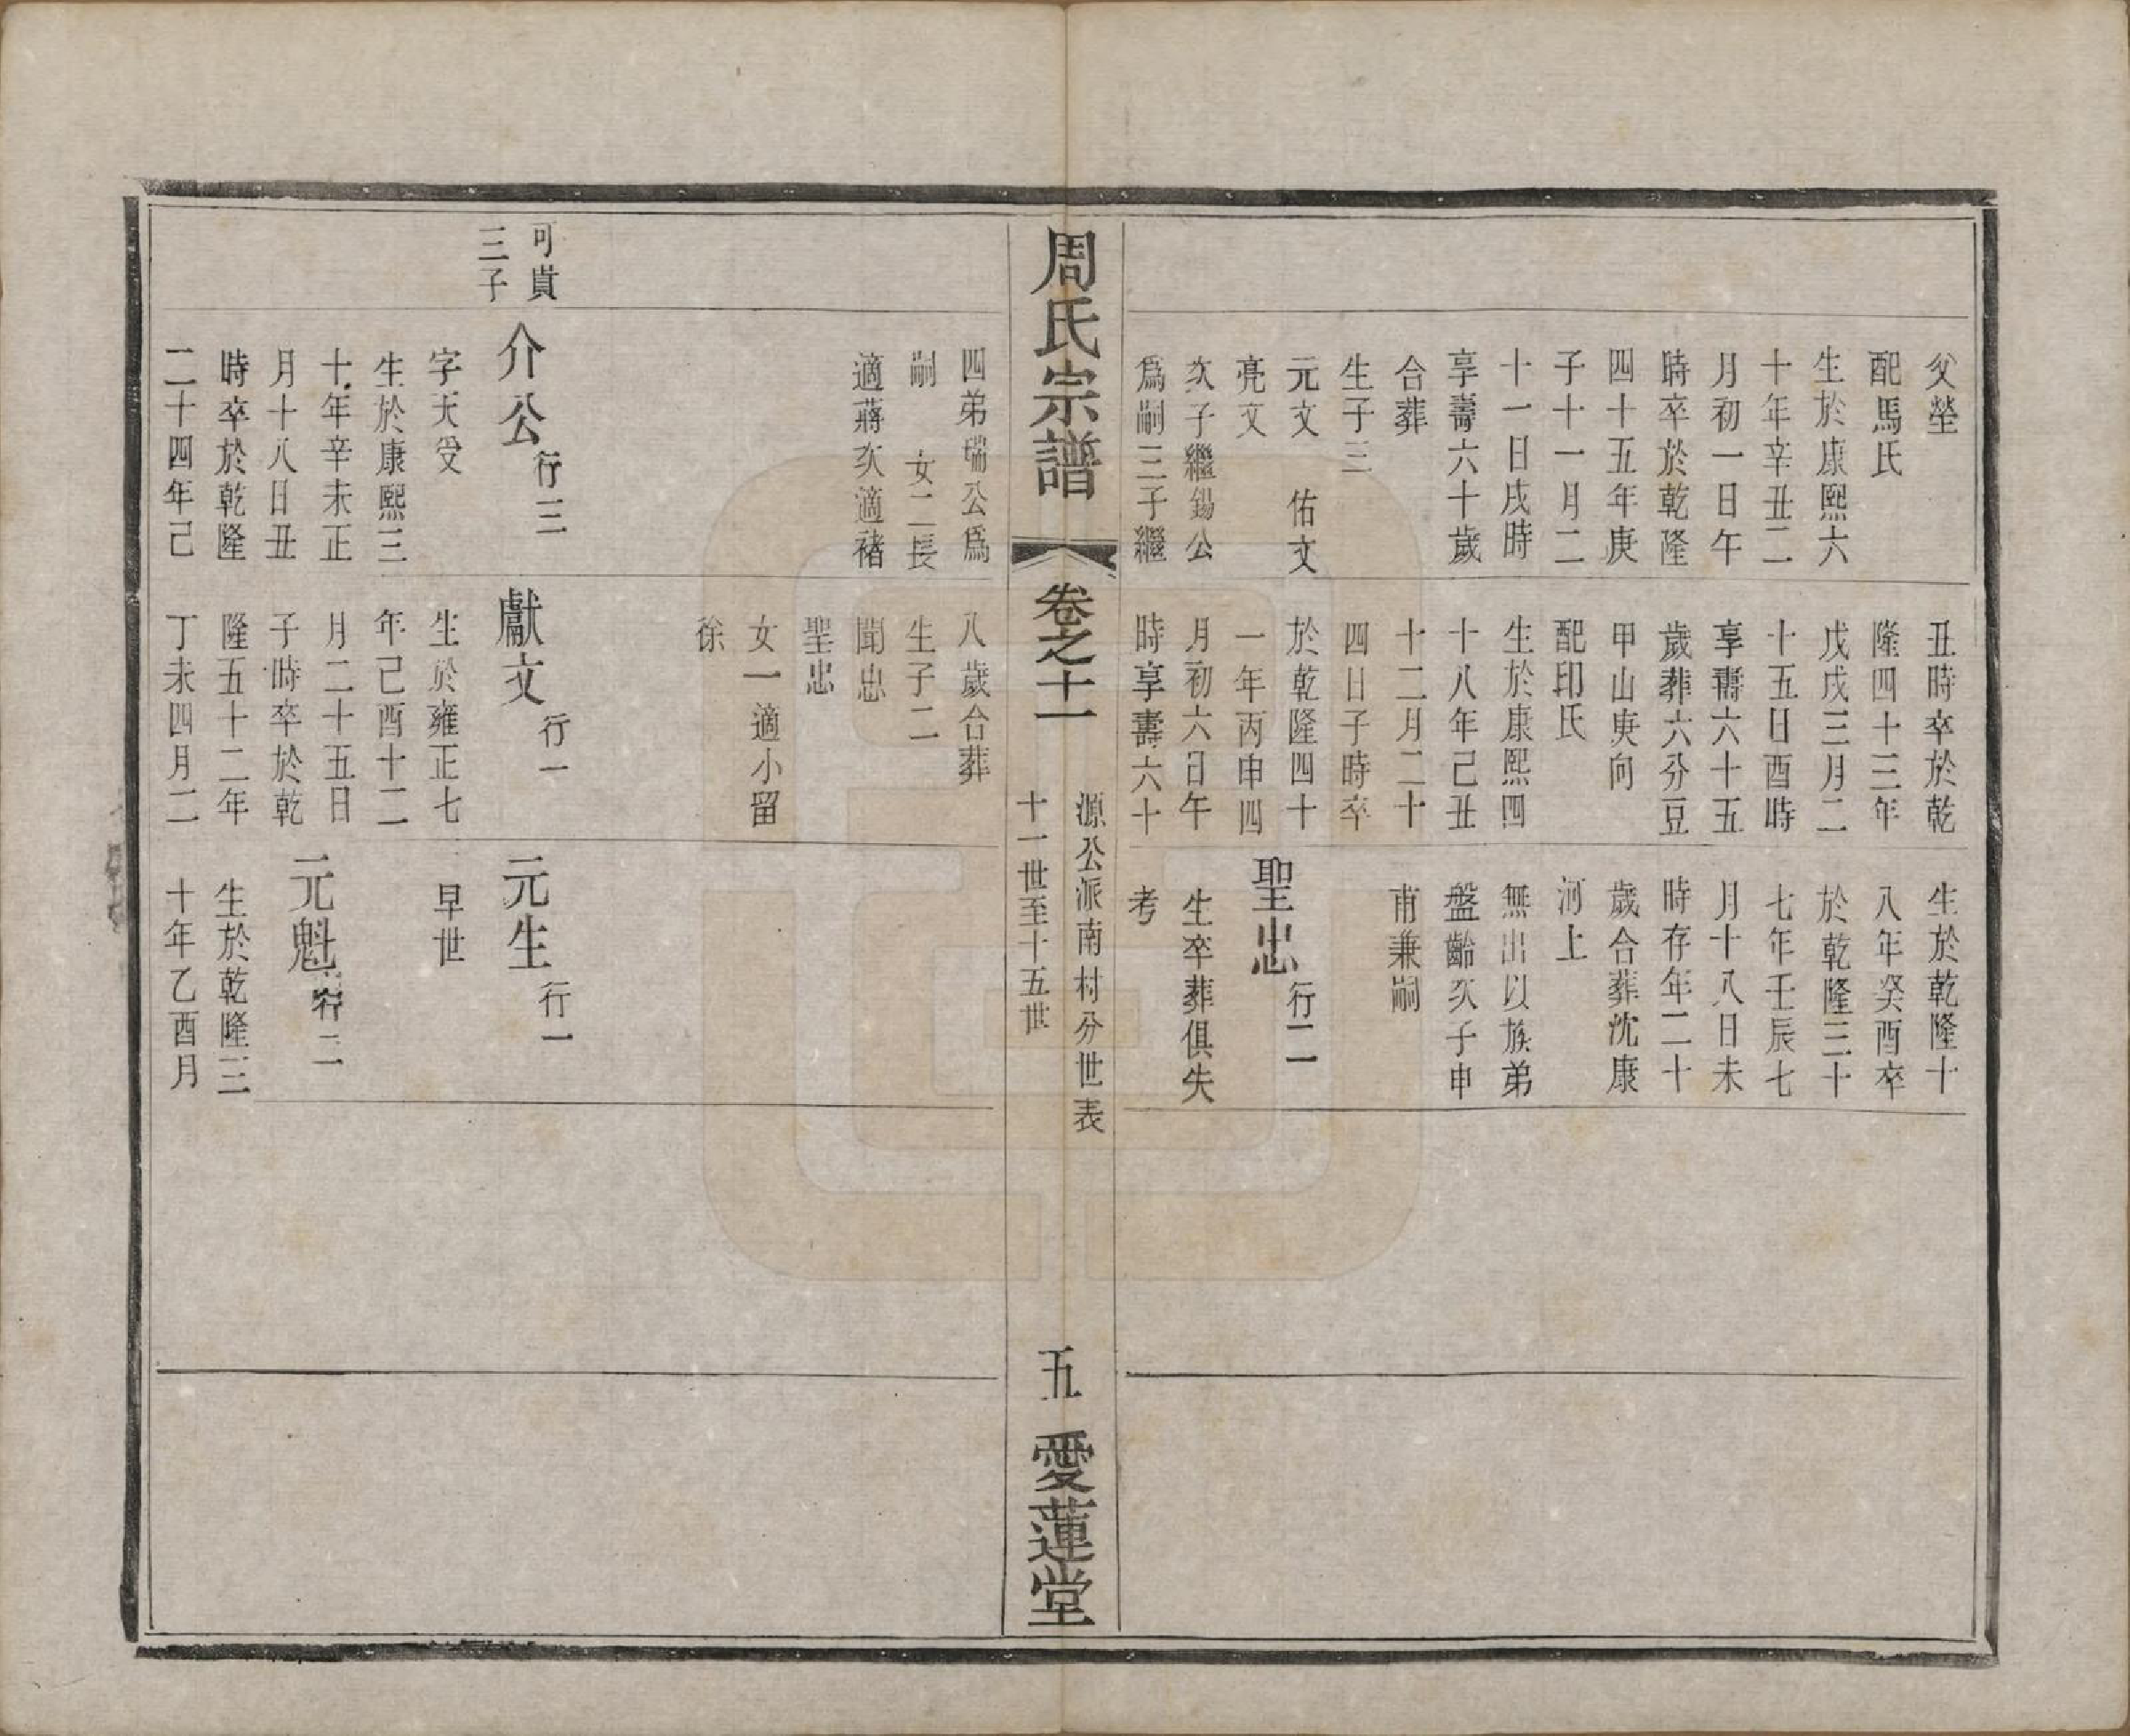 父塋
配馬氏
生於康熙六
十年辛丑二
月初一日午
時卒於乾隆
四十五年庚
子十一月二
十一日戌時
享壽六十歲
合葬
生子三
元文　佑文
亮文
次子繼錫公
爲嗣三子繼
丑時卒於乾
隆四十三年
戊戌三月二
十五日酉時
享壽六十五
歲葬六分豆
甲山庚向
配印氏
生於康熙四
十八年己丑
十二月二十
四日子時卒
於乾隆四十
一年丙申四
月初六日午
時享壽六十
生於乾隆十
八年癸酉卒
於乾隆三十
七年壬辰七
月十八日未
時存年二十
歲合葬沈康
河上
無出以族弟
盤齡次子申
甫兼嗣
聖忠 行二
生卒葬俱失
考
周氏宗譜
卷之十一
源公派南村分世表
十一世至十五世
五
愛蓮堂
四弟瑞公爲
嗣　女二長
適蔣次適褚
八歲合葬
生子二
聞忠
聖忠
女一適小留
徐
可貴
三子
介公 行三
字天受
生於康熙三
十年辛未正
月十八日丑
時卒於乾隆
二十四年己
獻文 行一
生於雍正七
年己酉十二
月二十五日
子時卒於乾
隆五十二年
丁未四月二
元生 行一
早世
元魁 行二
生於乾隆三
十年乙酉月